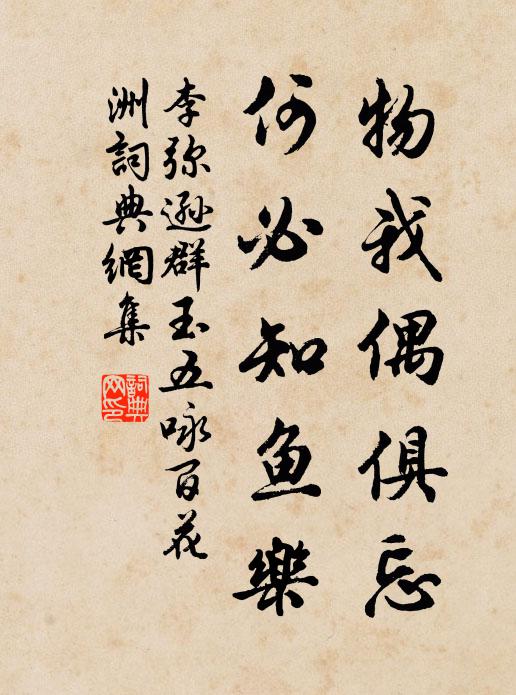 物我偶俱忘
何必知鱼樂
李弥遜群玉五咏百花
洲詞典網集
詞典
网印